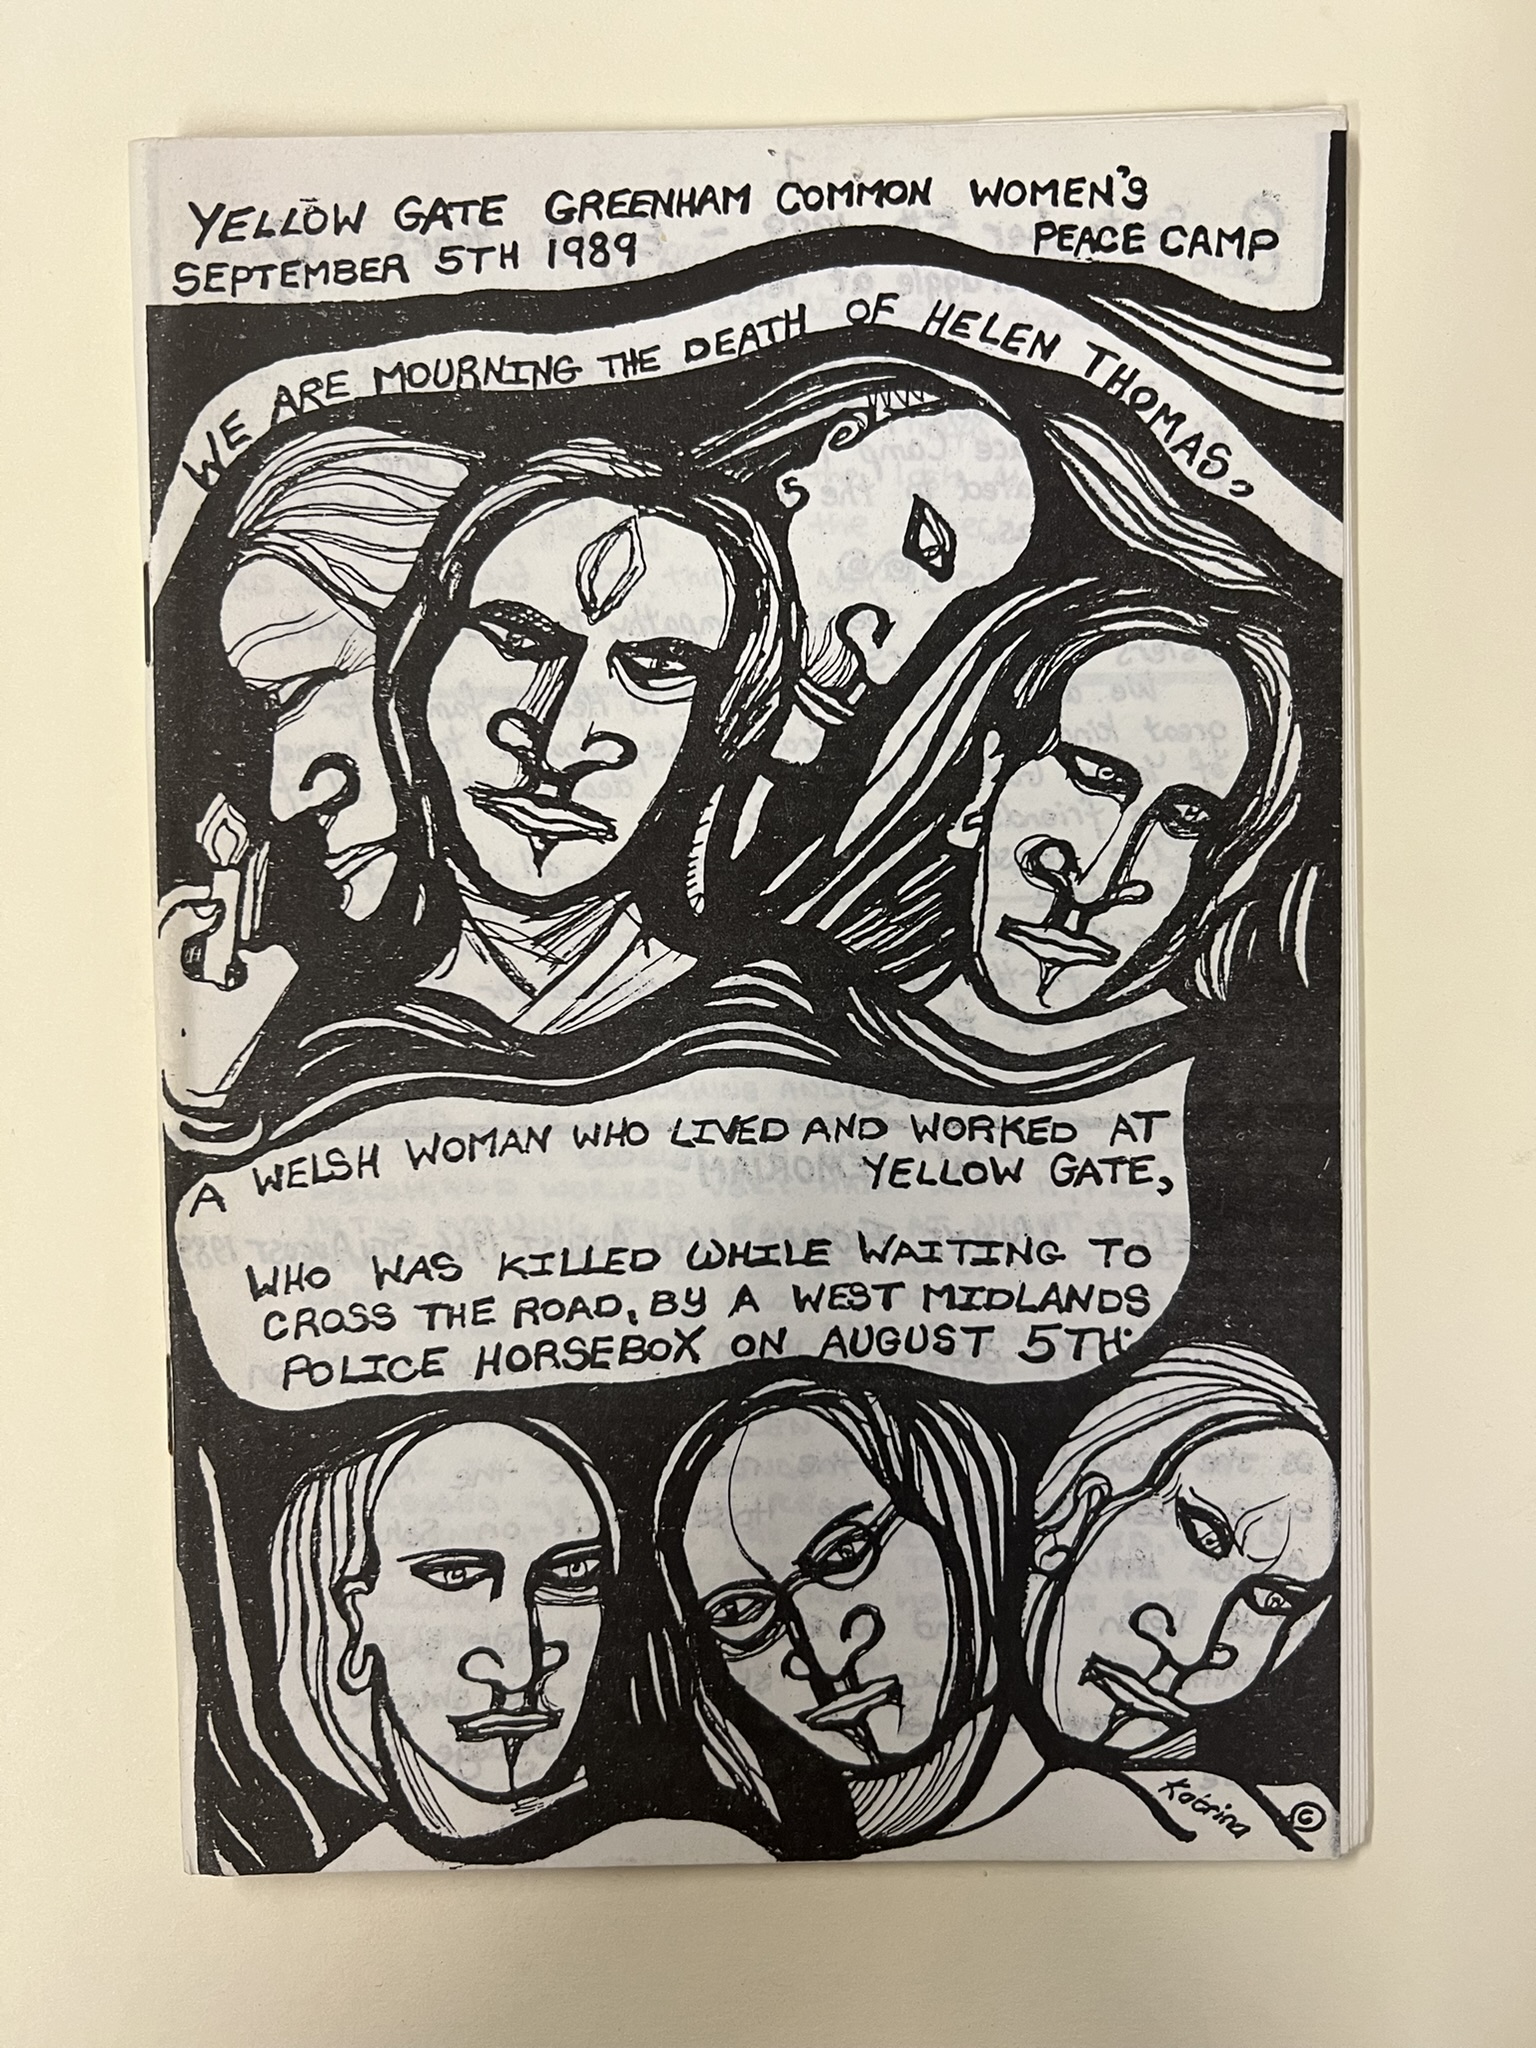 YELLOW GATE GREENHAM COMMON WOMEN'S
PEACE CAMP
SEPTEMBER 5TH 1989
WE ARE MOURNING THE DEATH OF HELEN THOMAS,
A WELSH WOMAN WHO LIVED AND WORKED AT
YELLOW GATE,
WHO WAS KILLED WHILE WAITING TO
CROSS THE ROAD, BY A WEST MIDLANDS
POLICE HORSEBOX ON AUGUST 5TH.
Katrina ©